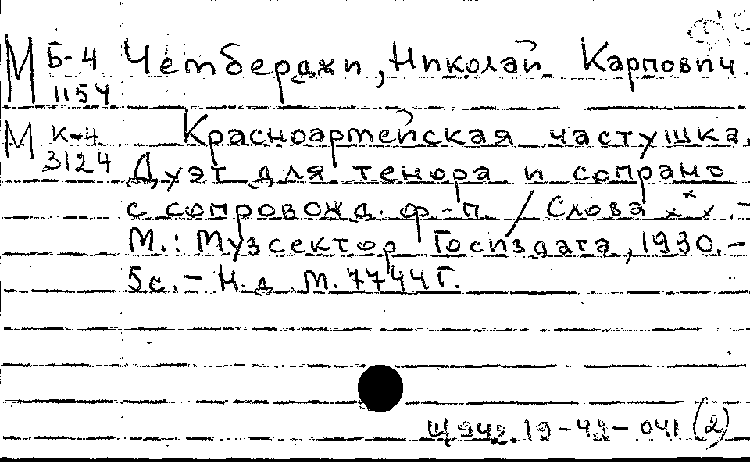 М Б-4 Чемберджи, Николай Карпович.
1154
М К-4 Красноармейская частушка.
3124 Дуэт для тенора и сопрано
с сопровожд. ф-п. / Слова ххх. -
М.: Музсектор Госиздата, 1930. -
5 с. - Н.д. М. 7744 Г.
Щ 949.19-49-041 (2)